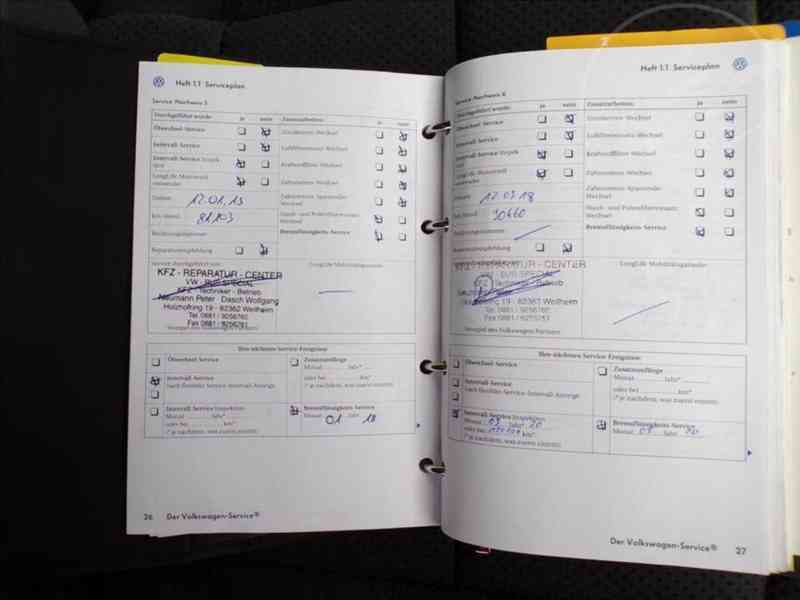 Heft 1.1 Serviceplan
Service Nachweis 5
Durchgeführt wurde: ja nein Zusatzarbeiten: ja nein
Ölwechsel-Service
Intervall-Service
LongLife Motorenöl
verwendet
Datum: 12.01.15
km-Stand: 81103
Reparaturempfehlung
Service durchgeführt von:
KFZ - REPARATUR - CENTER
VW - BUS SPECIAL
KFZ - Techniker - Betrieb
Neumann Peter - Dasch Wolfgang
Holzhofring 19 - 82362 Weilheim
Tel. 0881 /
Fax 0881 /
Stempel des Volkswagen Partners
-Wechsel
Luftfiltereinsatz-Wechsel
Kraftstofffilter-Wechsel
Zahnriemen-Wechsel
Zahnriemen Spannrolle-
Wechsel
Staub- und Pollenfiltereinsatz-
Wechsel
Bremsflüssigkeits-Service
Ihre nächsten Service-Ereignisse
Ölwechsel-Service
Intervall-Service
nach flexibler Service-Intervall-Anzeige
Intervall-Service Inspektion
Monat Jahr*
oder bei km*
(* je nachdem, was zuerst eintritt)
Monat Jahr*
oder bei
(* je nachdem, was zuerst eintritt)
Bremsflüssigkeits-Service
Monat 01 Jahr 18
26 Der Volkswagen-Service®
Heft 1.1 Serviceplan
Service Nachweis 6
Durchgeführt wurde: ja nein Zusatzarbeiten: ja nein
Ölwechsel-Service
Intervall-Service
LongLife Motorenöl
verwendet
Datum: 12.03.18
km-Stand: 90660
Reparaturempfehlung
KFZ - REPARATUR - CENTER
VW - BUS SPECIAL
KFZ - Techniker - Betrieb
19 - 82362 Weilheim
Tel. 0881 /
Fax 0881 /
Stempel des Volkswagen Partners
-Wechsel
Luftfiltereinsatz-Wechsel
Kraftstofffilter-Wechsel
Zahnriemen-Wechsel
Zahnriemen Spannrolle-
Wechsel
Staub- und Pollenfiltereinsatz-
Wechsel
Bremsflüssigkeits-Service
LongLife Mobilitätsgarantie
Ihre nächsten Service-Ereignisse
Ölwechsel-Service
Intervall-Service
nach flexibler Service-Intervall-Anzeige
Intervall-Service Inspektion
Monat 03 Jahr* 20
oder bei km*
(* je nachdem, was zuerst eintritt)
Monat Jahr*
oder bei
(* je nachdem, was zuerst eintritt)
Bremsflüssigkeits-Service
Monat 03 Jahr 20
Der Volkswagen-Service® 27